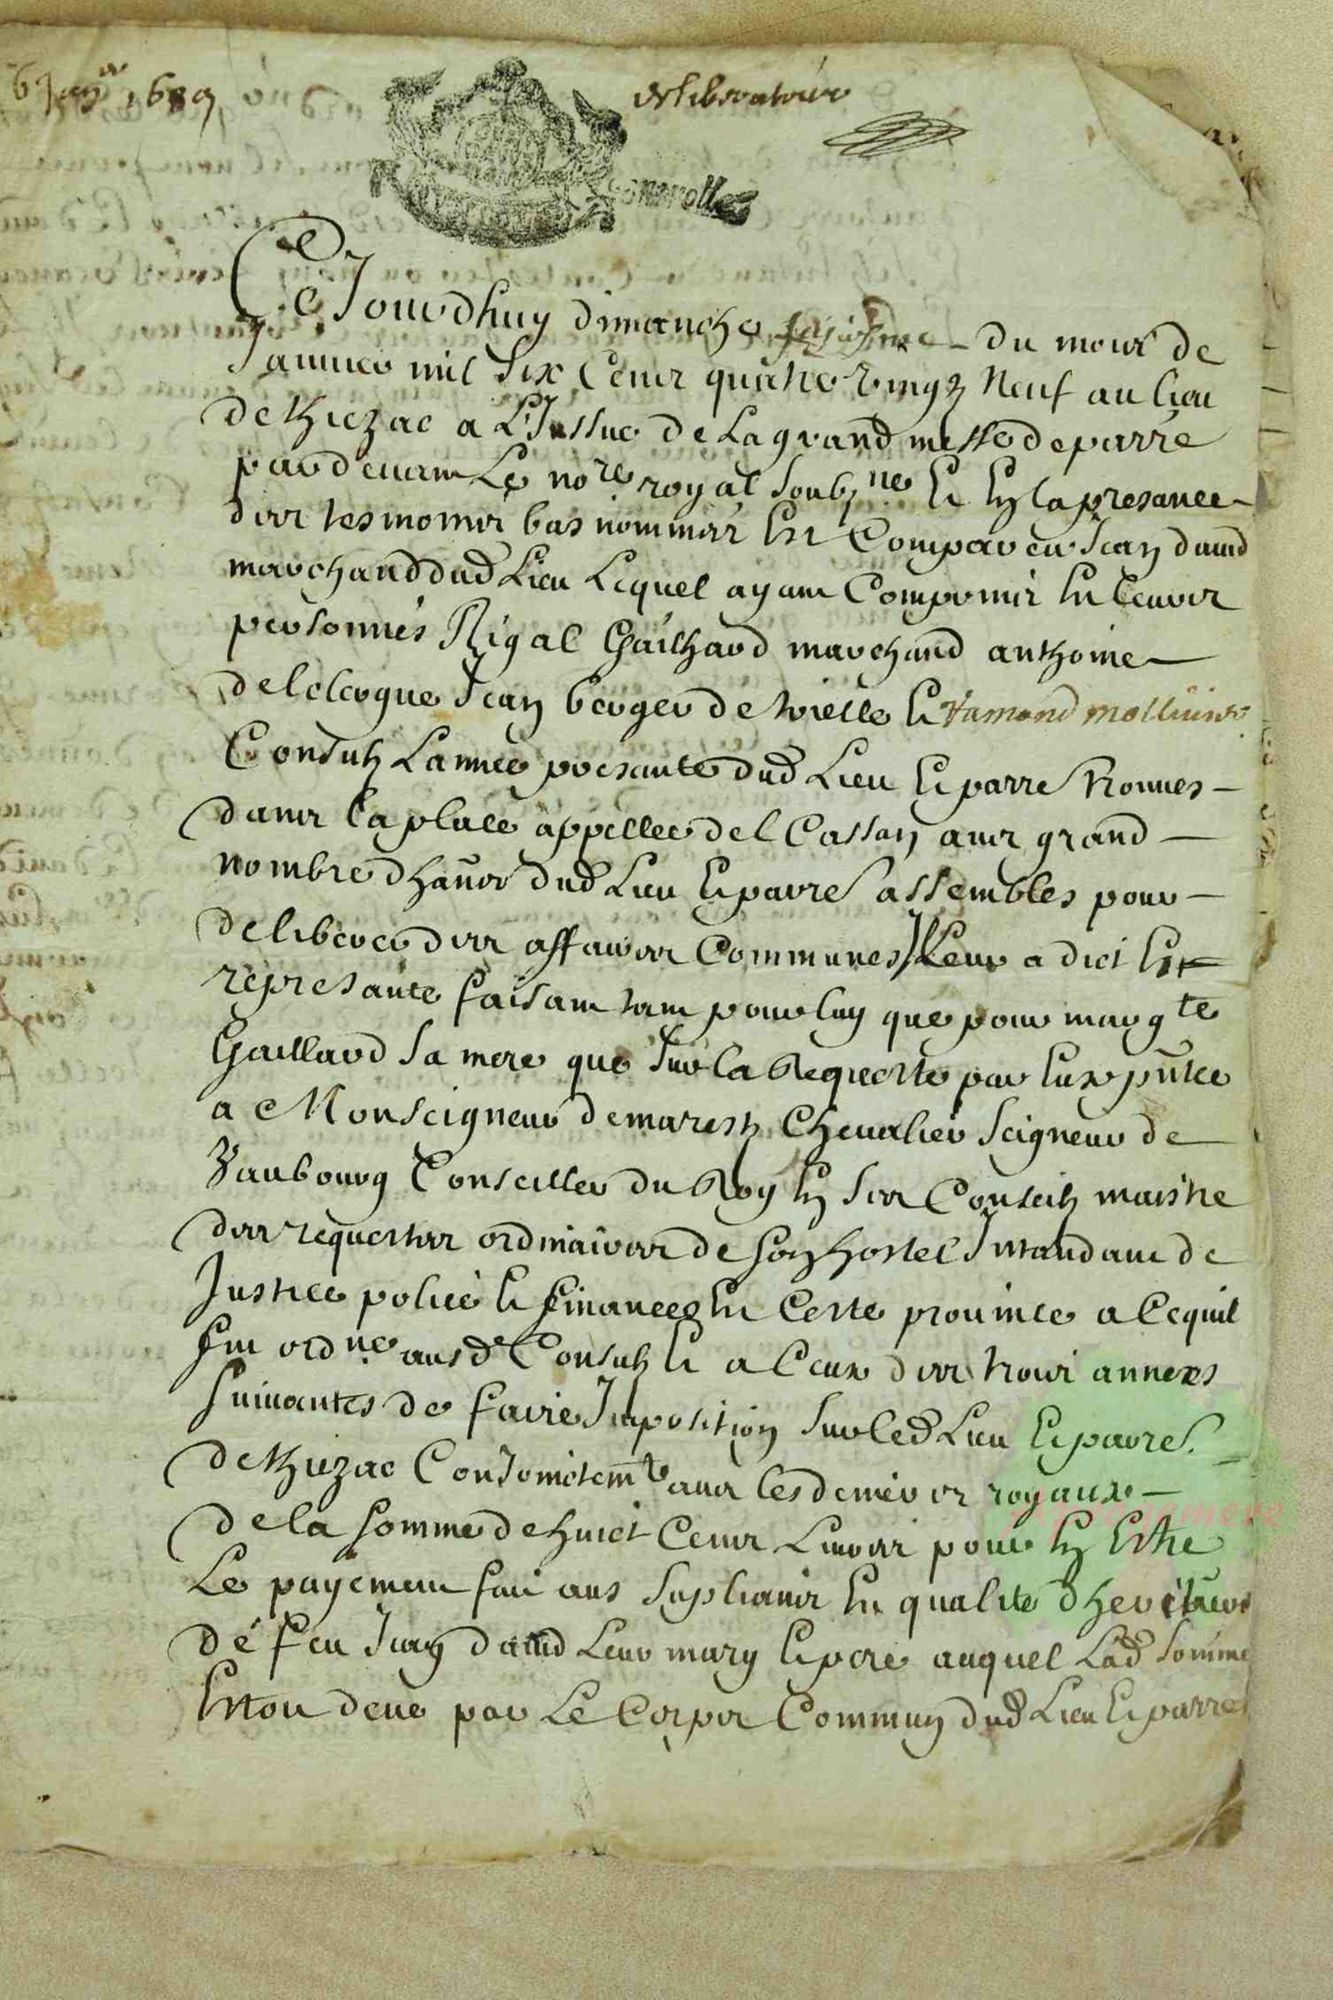 6 Janv.er 1689 deliberatoire
Ce Jourdhuy dimanche du mois de
Janvier mil six cens quatre vingtz Neuf au lieu
de thiezac a L'Issue de La grand messe de parre
par devam Le no.re royal soubz.ne Et En la presance
des tesmoins bas nommés Est Comparu Jean david
marchand dud Lieu Lequel ayam Comprins En leurs
personnes Rigal Gailhard marchand anthoine
delclergue Jean berger de vielle Et ramond
Consulz Lannee presante dud Lieu Et parre trouves
dans la place appellee del Cassan avec grand
nombre d'hãns dud Lieu Et parre assembles pour
deliberer des affaires Communes, Leur a dict Et
represante faisam tam pour luy que pour marg.te
Gaillard sa mere que sur la Requeste par Eux pñtee
a Monseigneur demarestz Chevalier seigneur de
Vaubourg Conseiller du Roy En ses Conseilz maistre
des requestes ordinaires de son hostel Intandam de
Justice police Et finances En Ceste province a Lequel
ord.ne ausd Consulz Et a Ceux des trois annees
suivantes de faire Imposition sur led Lieu Et parre
de thiezac Conjoinctem.t avec les deniers royaux
de la somme de huict Cens Livres pour En Estre
Le payemem fait aus supliams En qualite d'heretiers
de feu Jean david Leur mary Et pere auquel Lad somme
Estoit deue par Le Corps Commun dud Lieu Et parre